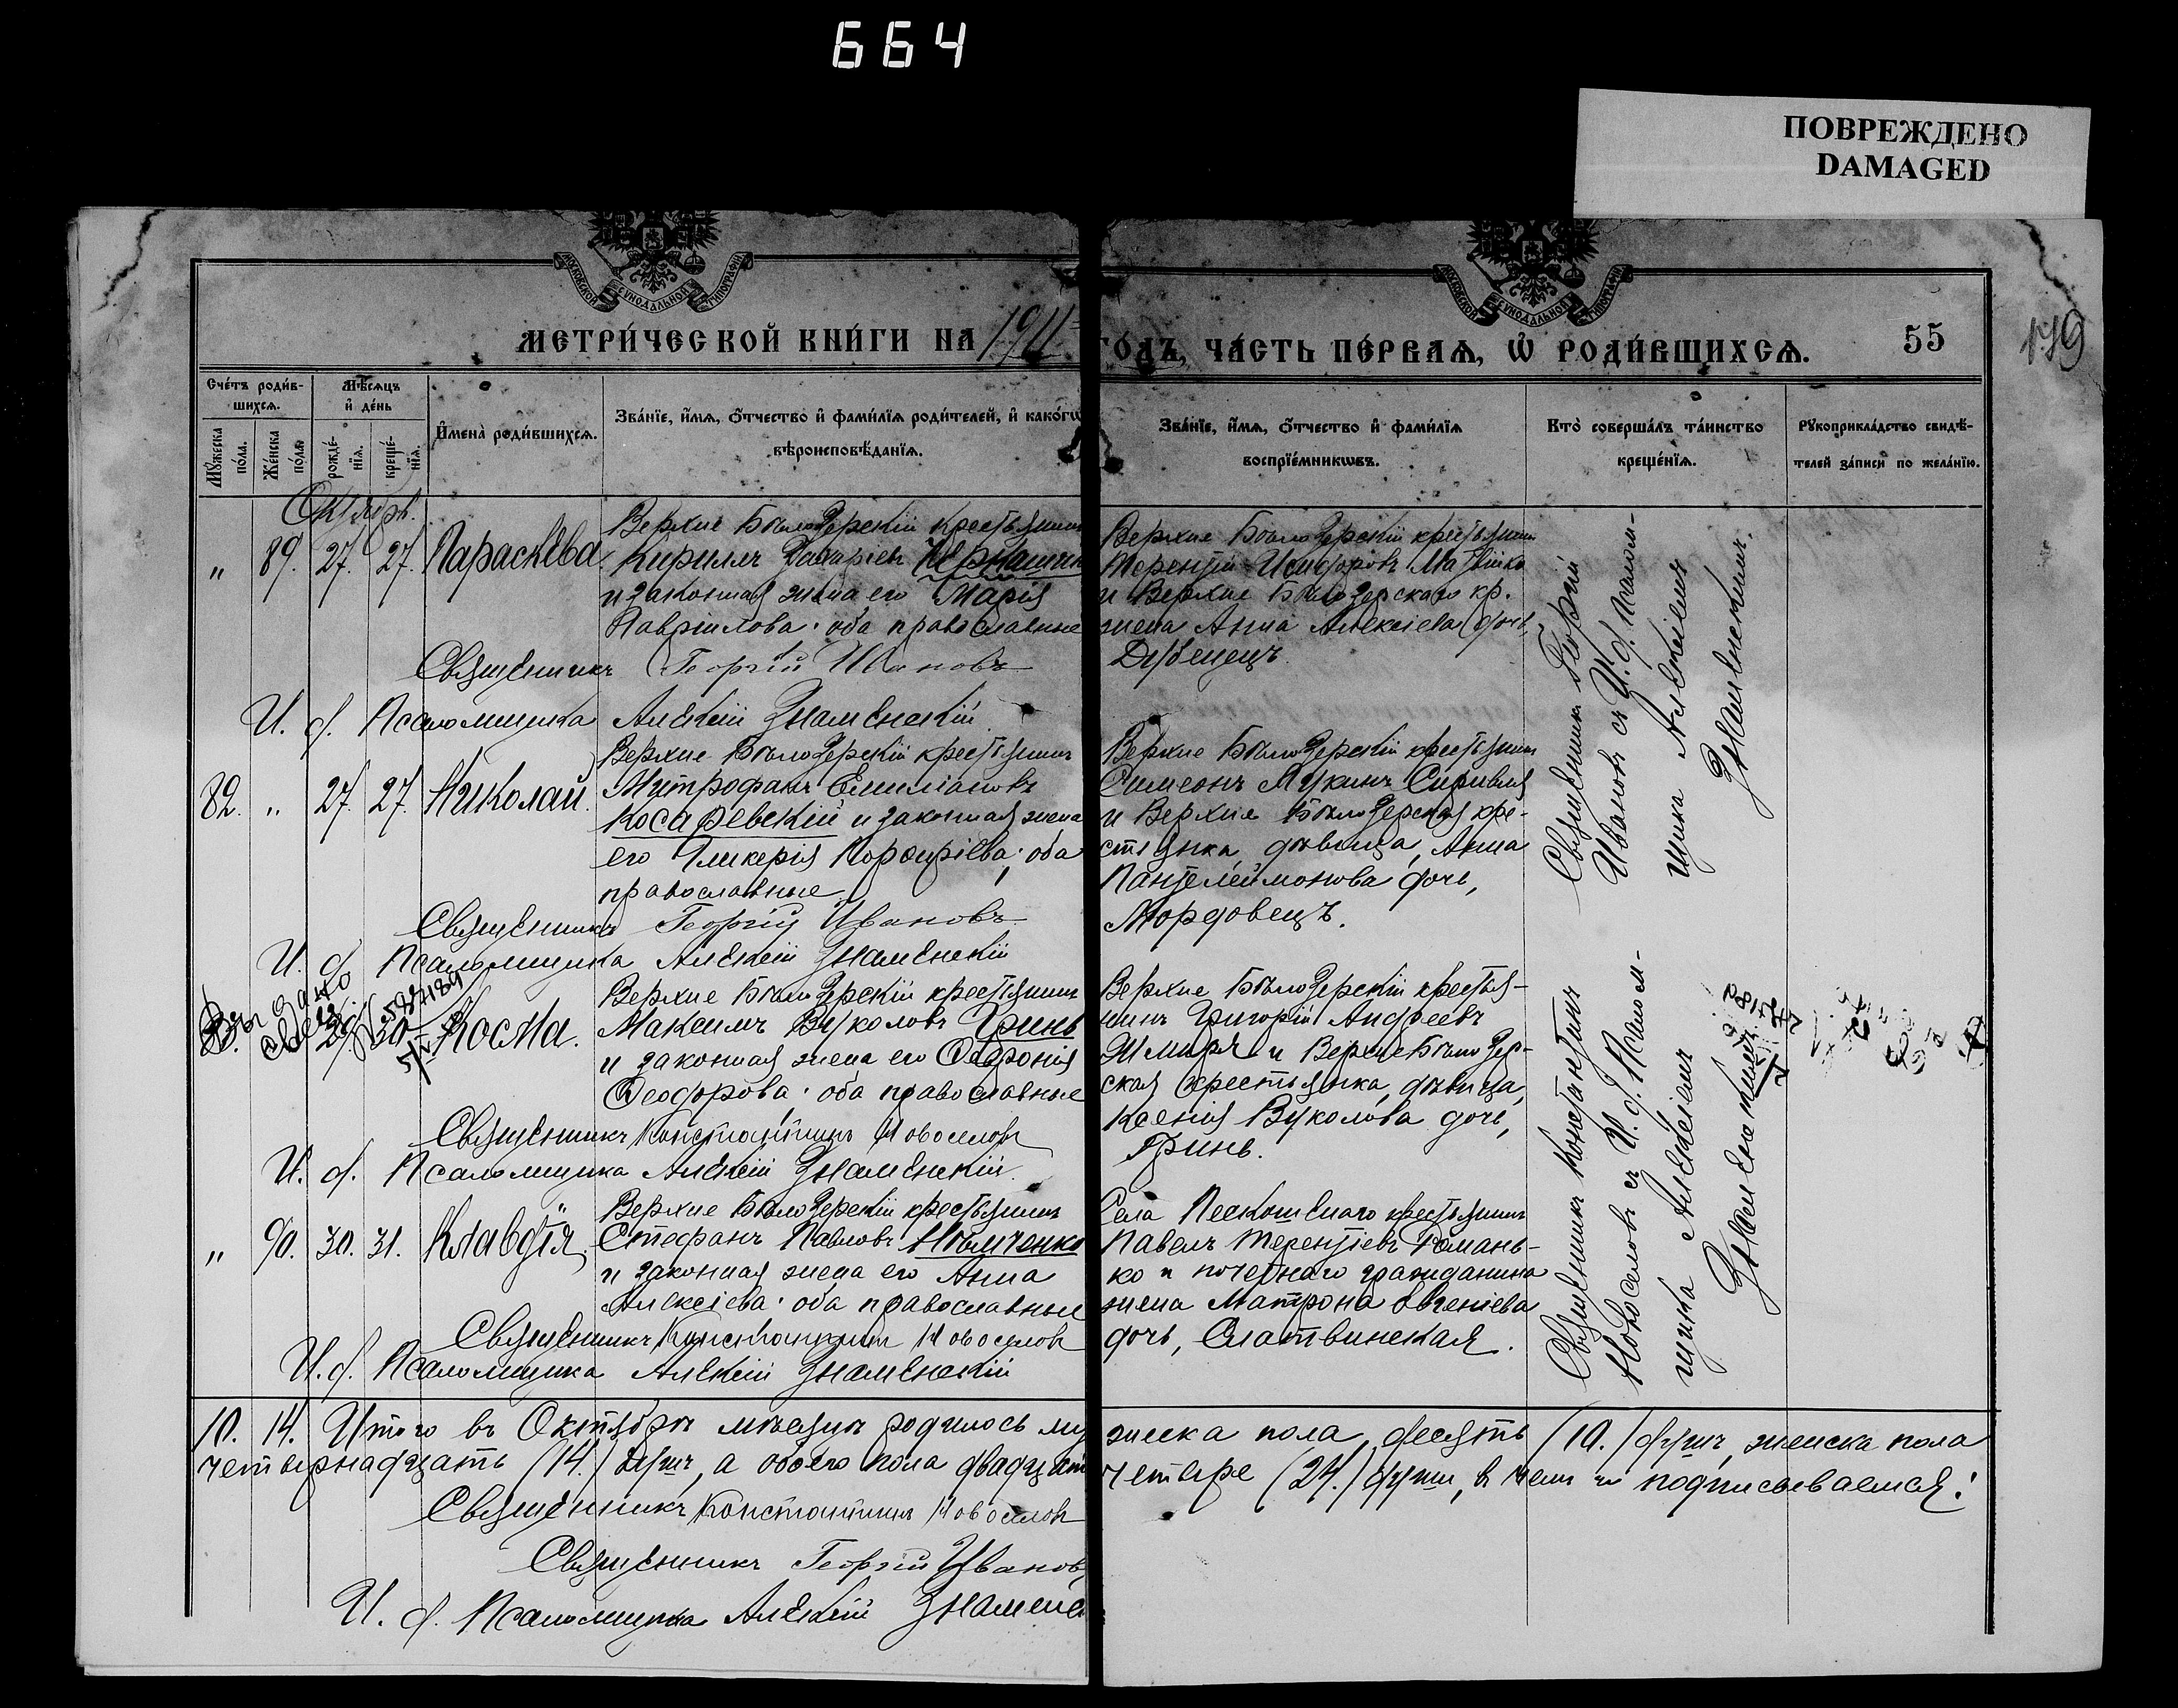 664
ПОВРЕЖДЕНО
DAMAGED
МОСКОВСКОЙ СѴНОДАЛЬНОЙ ТИПОГРАФІИ
МОСКОВСКОЙ СѴНОДАЛЬНОЙ ТИПОГРАФІИ
МЕТРИ́ЧЕСКОЙ КНИ́ГИ НА 1911 ГО́ДЪ, ЧА́СТЬ ПЕ́РВАѦ, Ѡ҆ РОДИ́ВШИХСѦ.
55
179
Сче́тъ роди́вшихсѧ.
Мꙋ́жеска по́ла.
Же́нска по́ла
Мѣ́сѧцъ и҆ де́нь
рожде́нїѧ.
креще́нїѧ.
И҆мена̀ роди́вшихсѧ.
Зва́нїе, и҆́мѧ, ѻ҆́тчество и҆ фами́лїѧ роди́телей, и҆ како́гѡ
вѣроисповѣ́данїѧ.
Зва́нїе, и҆́мѧ, ѻ҆́тчество и҆ фами́лїѧ
воспрїе́мникѡвъ.
Кто̀ соверша́лъ та́инство
креще́нїѧ.
Рꙋкоприкла́дство свидѣ́-
телей за́писи по жела́нїю.
Октябрь.
" 89. 27. 27. Параскева
Верхне Бѣлозерскій крестьянинъ
Кирилъ Захаріевъ
и законная жена его Марія
Гавріилова; оба православные
Священникъ Георгій Ивановъ
И. д. Псаломщика Алексій Знаменскій
Верхне Бѣлозерскій крестьянинъ
Терентій Исидоровъ
и Верхне Бѣлозерскаго кр.
жена Анна Алексіева дочь,
Дубенецъ.
Священникъ Георгій
Ивановъ съ И. д. Псалом-
щика Алексіемъ
Знаменскимъ.
82. " 27. 27. Николай.
Верхне Бѣлозерскій крестьянинъ
Митрофанъ Емиліановъ
Косаревскій и законная жена
его Гликерія Порфиріева; оба
православные
Священникъ Георгій Ивановъ
И. д. Псаломщика Алексій Знаменскій
Верхне Бѣлозерскій крестьянинъ
Симеонъ
и Верхне Бѣлозерская кре-
стьянка, дѣвица, Анна
Пантелеймонова дочь,
Мордовецъ.
Выдано
29. 30. Косма.
Верхне Бѣлозерскій крестьянинъ
Максимъ Вуколовъ Гринь
и законная жена его Февронія
Ѳеодорова; оба православные
Священникъ Константинъ Новоселовъ
И. д. Псаломщика Алексій Знаменскій.
Верхне Бѣлозерскій крестья-
нинъ Григорій Андреевъ
и Верхне Бѣлозер-
ская крестьянка, дѣвица,
Ксенія Вуколова дочь,
Гринь.
Священникъ Константинъ
Новоселовъ съ И. д. Псалом-
щика Алексіемъ
Знаменскимъ
" 90. 30. 31. Клавдія
Верхне Бѣлозерскій крестьянинъ
Стефанъ Павловъ Нѣмченко
и законная жена его Анна
Алексіева; оба православные
Священникъ Константинъ Новоселовъ
И. д. Псаломщика Алексій Знаменскій
Села крестьянинъ
Павелъ Терентіевъ Романь-
ко и почетнаго гражданина
жена Матрона Евгеніева
дочь, Слатвинская.
10. 14. Итого въ Октябрѣ мѣсяцѣ родилось мужеска пола десять (10.) душъ, женска пола
четырнадцать (14.) душъ, а обоего пола двадцать четыре (24.) души, въ чемъ и подписываемся:
Священникъ Константинъ Новоселовъ
Священникъ Георгій Ивановъ
И. д. Псаломщика Алексій Знаменс